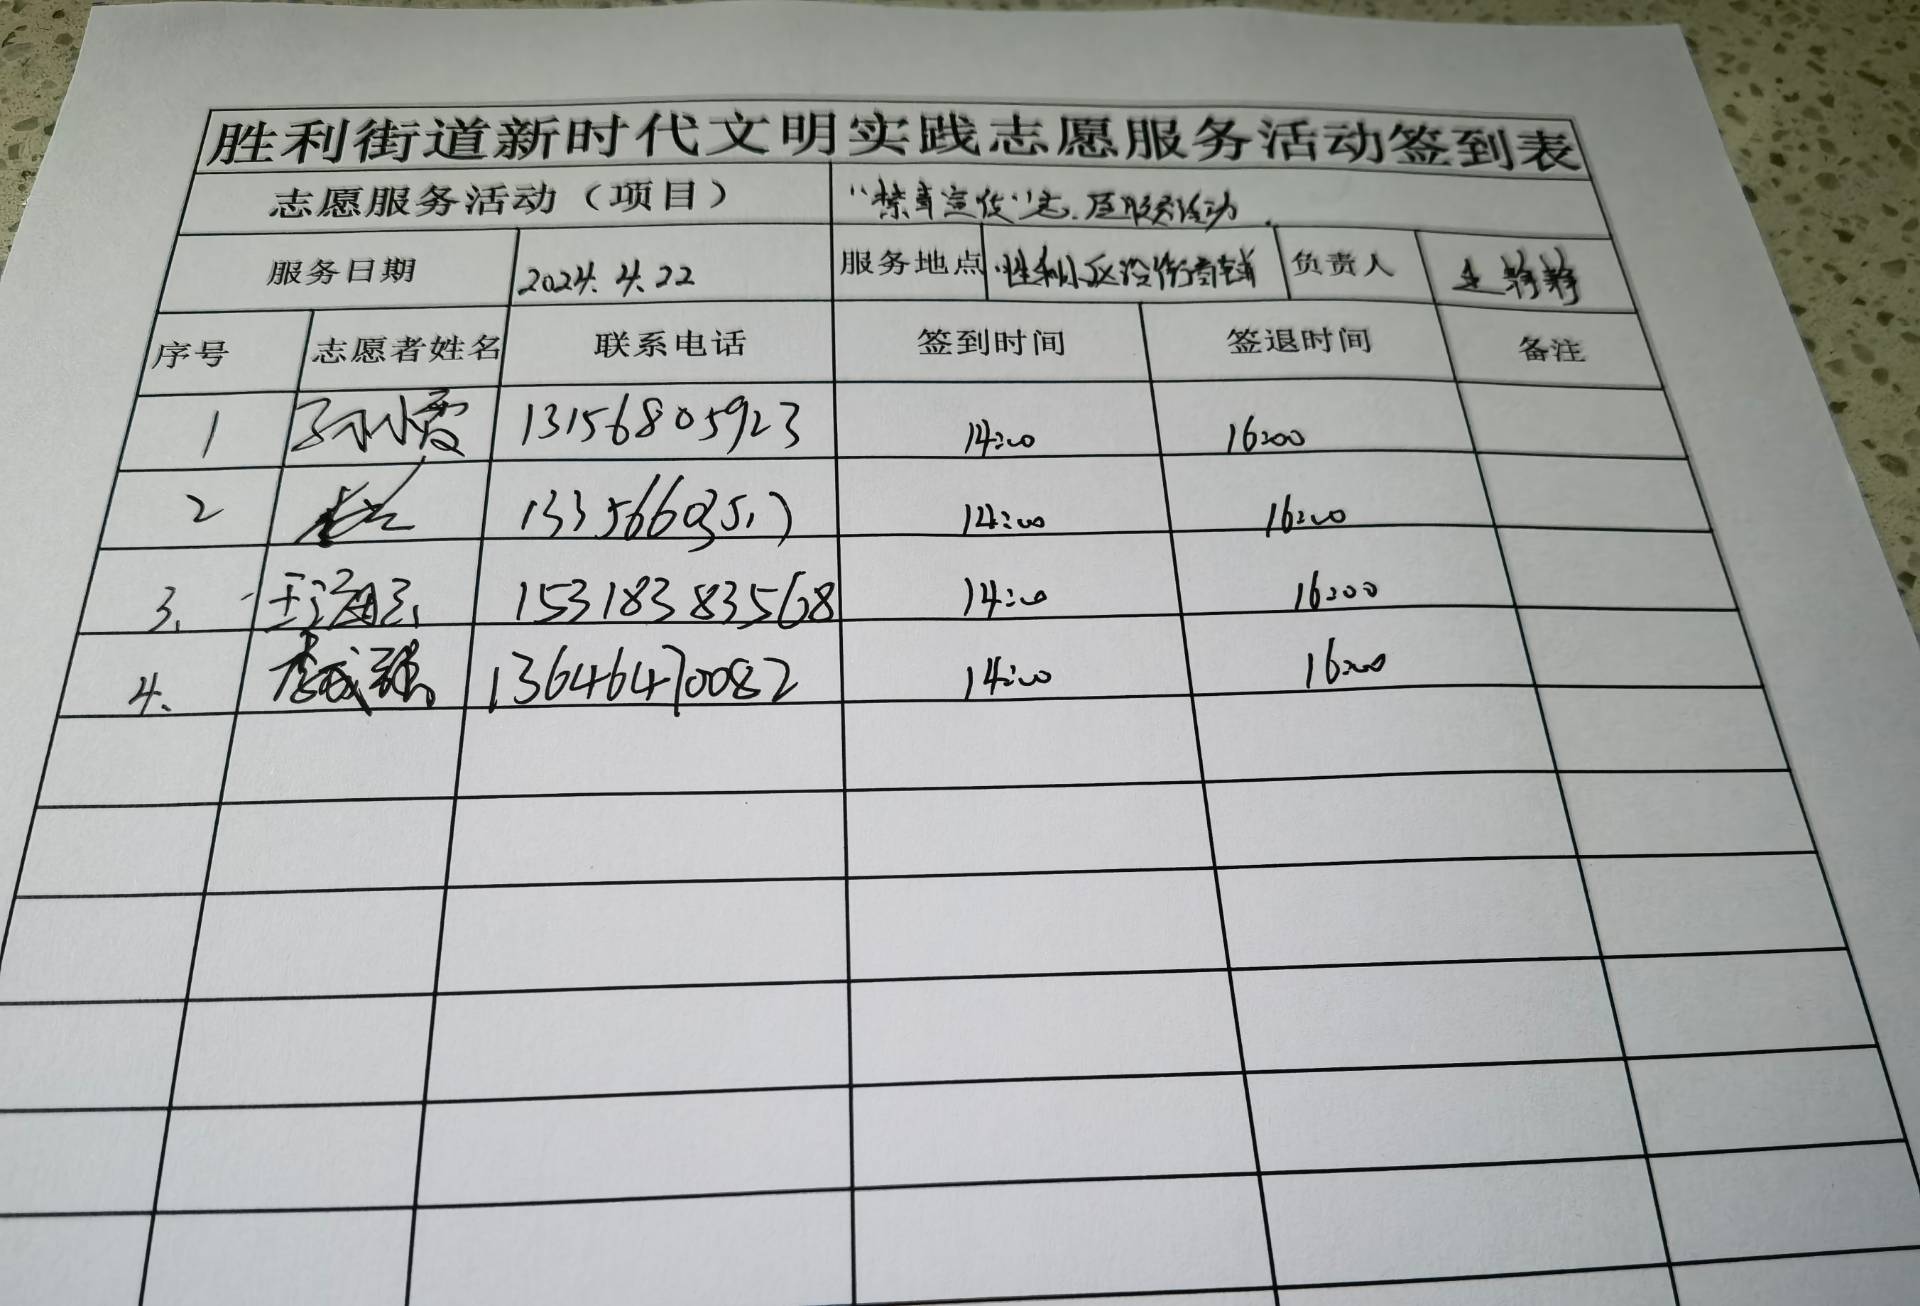 胜利街道新时代文明实践志愿服务活动签到表
志愿服务活动（项目） “禁毒宣传”志愿服务活动.
服务日期 2024.4.22 服务地点 胜利小区沿街商铺 负责人 王静静
序号 志愿者姓名 联系电话 签到时间 签退时间 备注
1 孙小霞 13156805923 14:00 16:00
2 14:00 16:00
3. 15318383568 14:00 16:00
4. 李成强 13646470082 14:00 16:00